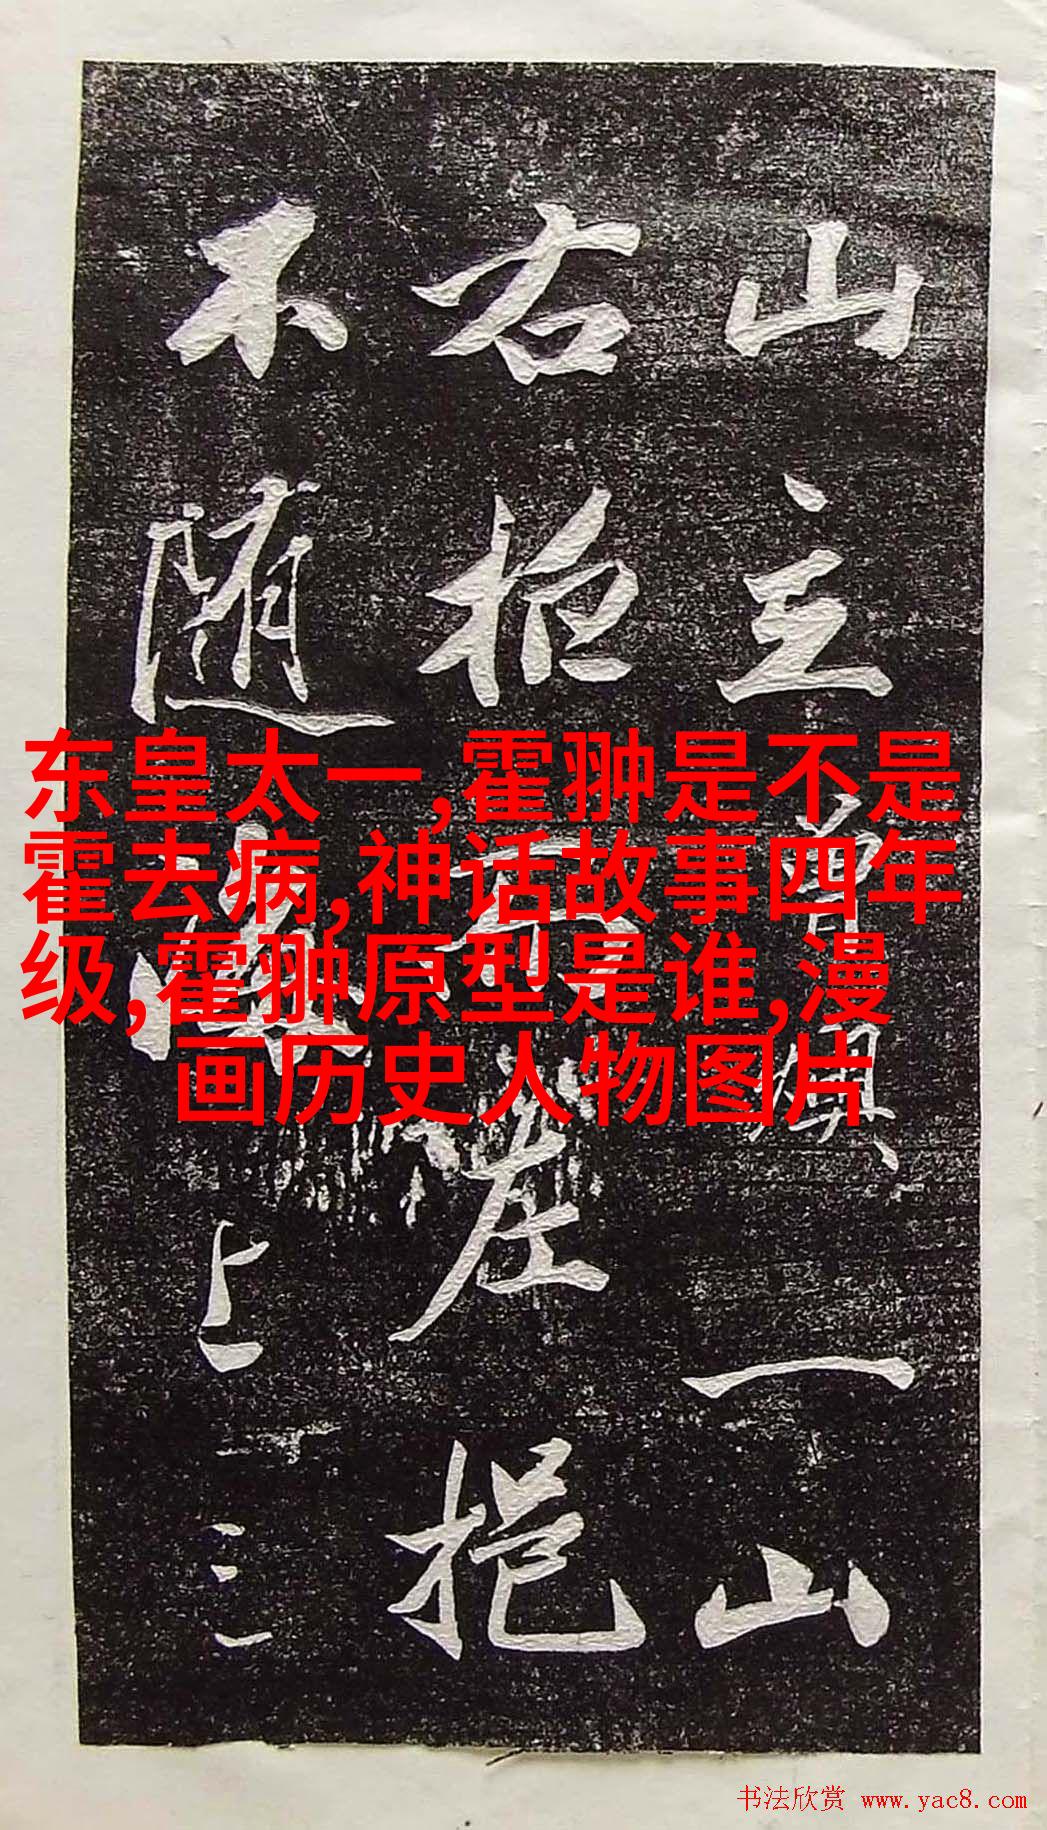 东皇太一,霍翀是不是
霍去病,神话故事四年
级,霍翀原型是谁,漫
画历史人物图片
山主曾一山
右崖挹
不随上三
书法欣赏 www.yac8.com